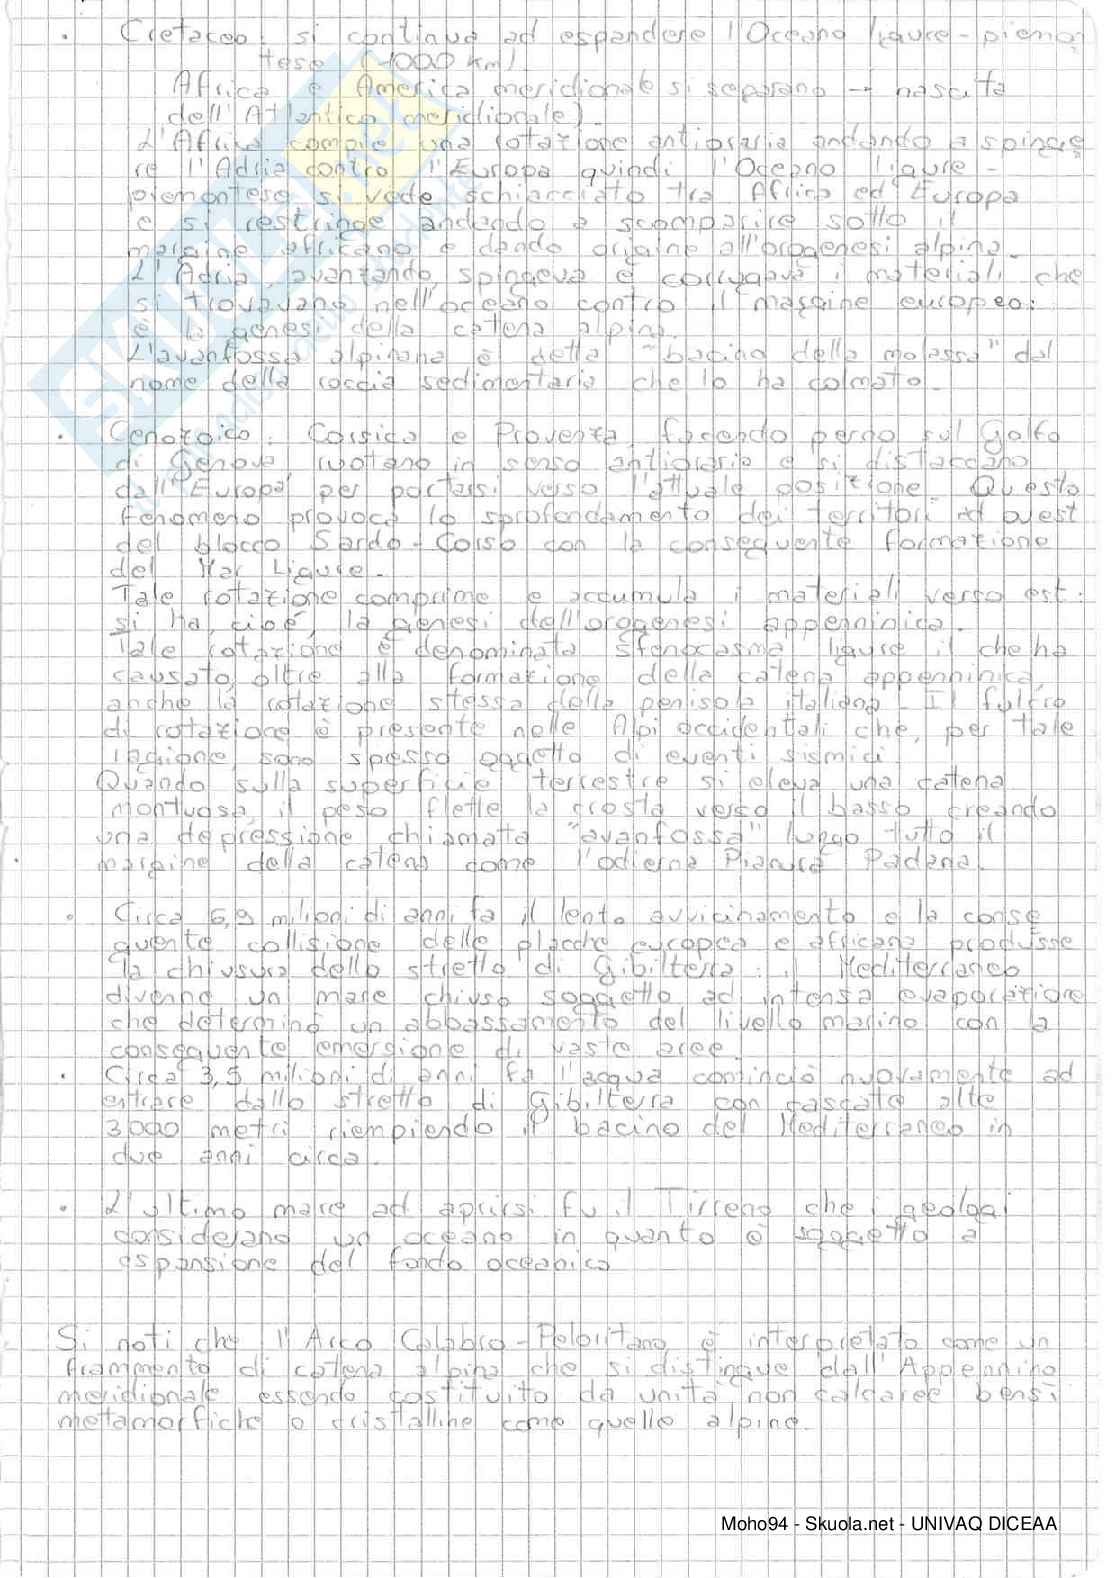 • Cretaceo: si continua ad espandere l'Oceano ligure-piemon
tese (~1000 km)
Africa e America meridionale si separano → nascita
dell'Atlantico meridionale).
L'Africa compie una rotazione antioraria andando a spinge
re l'Adria contro l'Europa quindi l'Oceano ligure-
piemontese si vede schiacciato tra Africa ed Europa
e si restringe andando a scomparire sotto il
margine africano e dando origine all'orogenesi alpina.
L'Adria, avanzando, spingeva e corrugava i materiali che
si trovavano nell'oceano contro il margine europeo:
è la genesi della catena alpina.
L'avanfossa alpina è detta "bacino della molassa" dal
nome della roccia sedimentaria che lo ha colmato.
• Cenozoico: Corsica e Provenza, facendo perno sul Golfo
di Genova, ruotano in senso antiorario e si distaccano
dall'Europa per portarsi verso l'attuale posizione. Questo
fenomeno provoca lo sprofondamento dei territori ad ovest
del blocco Sardo-Corso con la conseguente formazione
del Mar Ligure.
Tale rotazione comprime e accumula i materiali verso est:
si ha, cioè, la genesi dell'orogenesi appenninica.
Tale rotazione è denominata sfenocasma ligure il che ha
causato, oltre alla formazione della catena appenninica,
anche la rotazione stessa della penisola italiana. Il fulcro
di rotazione è presente nelle Api occidentali che, per tale
ragione, sono spesso oggetto di eventi sismici.
Quando sulla superficie terrestre si eleva una catena
montuosa, il peso flette la crosta verso il basso creando
una depressione chiamata "avanfossa" lungo tutto il
margine della catena come l'odierna Pianura Padana.
• Circa 6,9 milioni di anni fa il lento avvicinamento e la conse
guente collisione delle placche europea e africana produsse
la chiusura dello stretto di Gibilterra: il Mediterraneo
divenne un mare chiuso soggetto ad intensa evaporazione
che determinò un abbassamento del livello marino con la
conseguente emersione di vaste aree.
• Circa 3,5 milioni di anni fa l'acqua continciò nuovamente ad
entrare dallo stretto di Gibilterra con cascate alte
3000 metri riempiendo il bacino del Mediterraneo in
due anni circa.
• L'ultimo mare ad aprirsi fu il Tirreno che i geologi
considerano un oceano in quanto è soggetto a
espansione del fondo oceanico
Si noti che l'Arco Calabro-Peloritano è interpretato come un
frammento di catena alpina che si distingue dall'Appennino
meridionale essendo costituito da unità non calcaree bensì
metamorfiche o cristalline come quelle alpine.
Moho94 - Skuola.net - UNIVAQ DICEAA